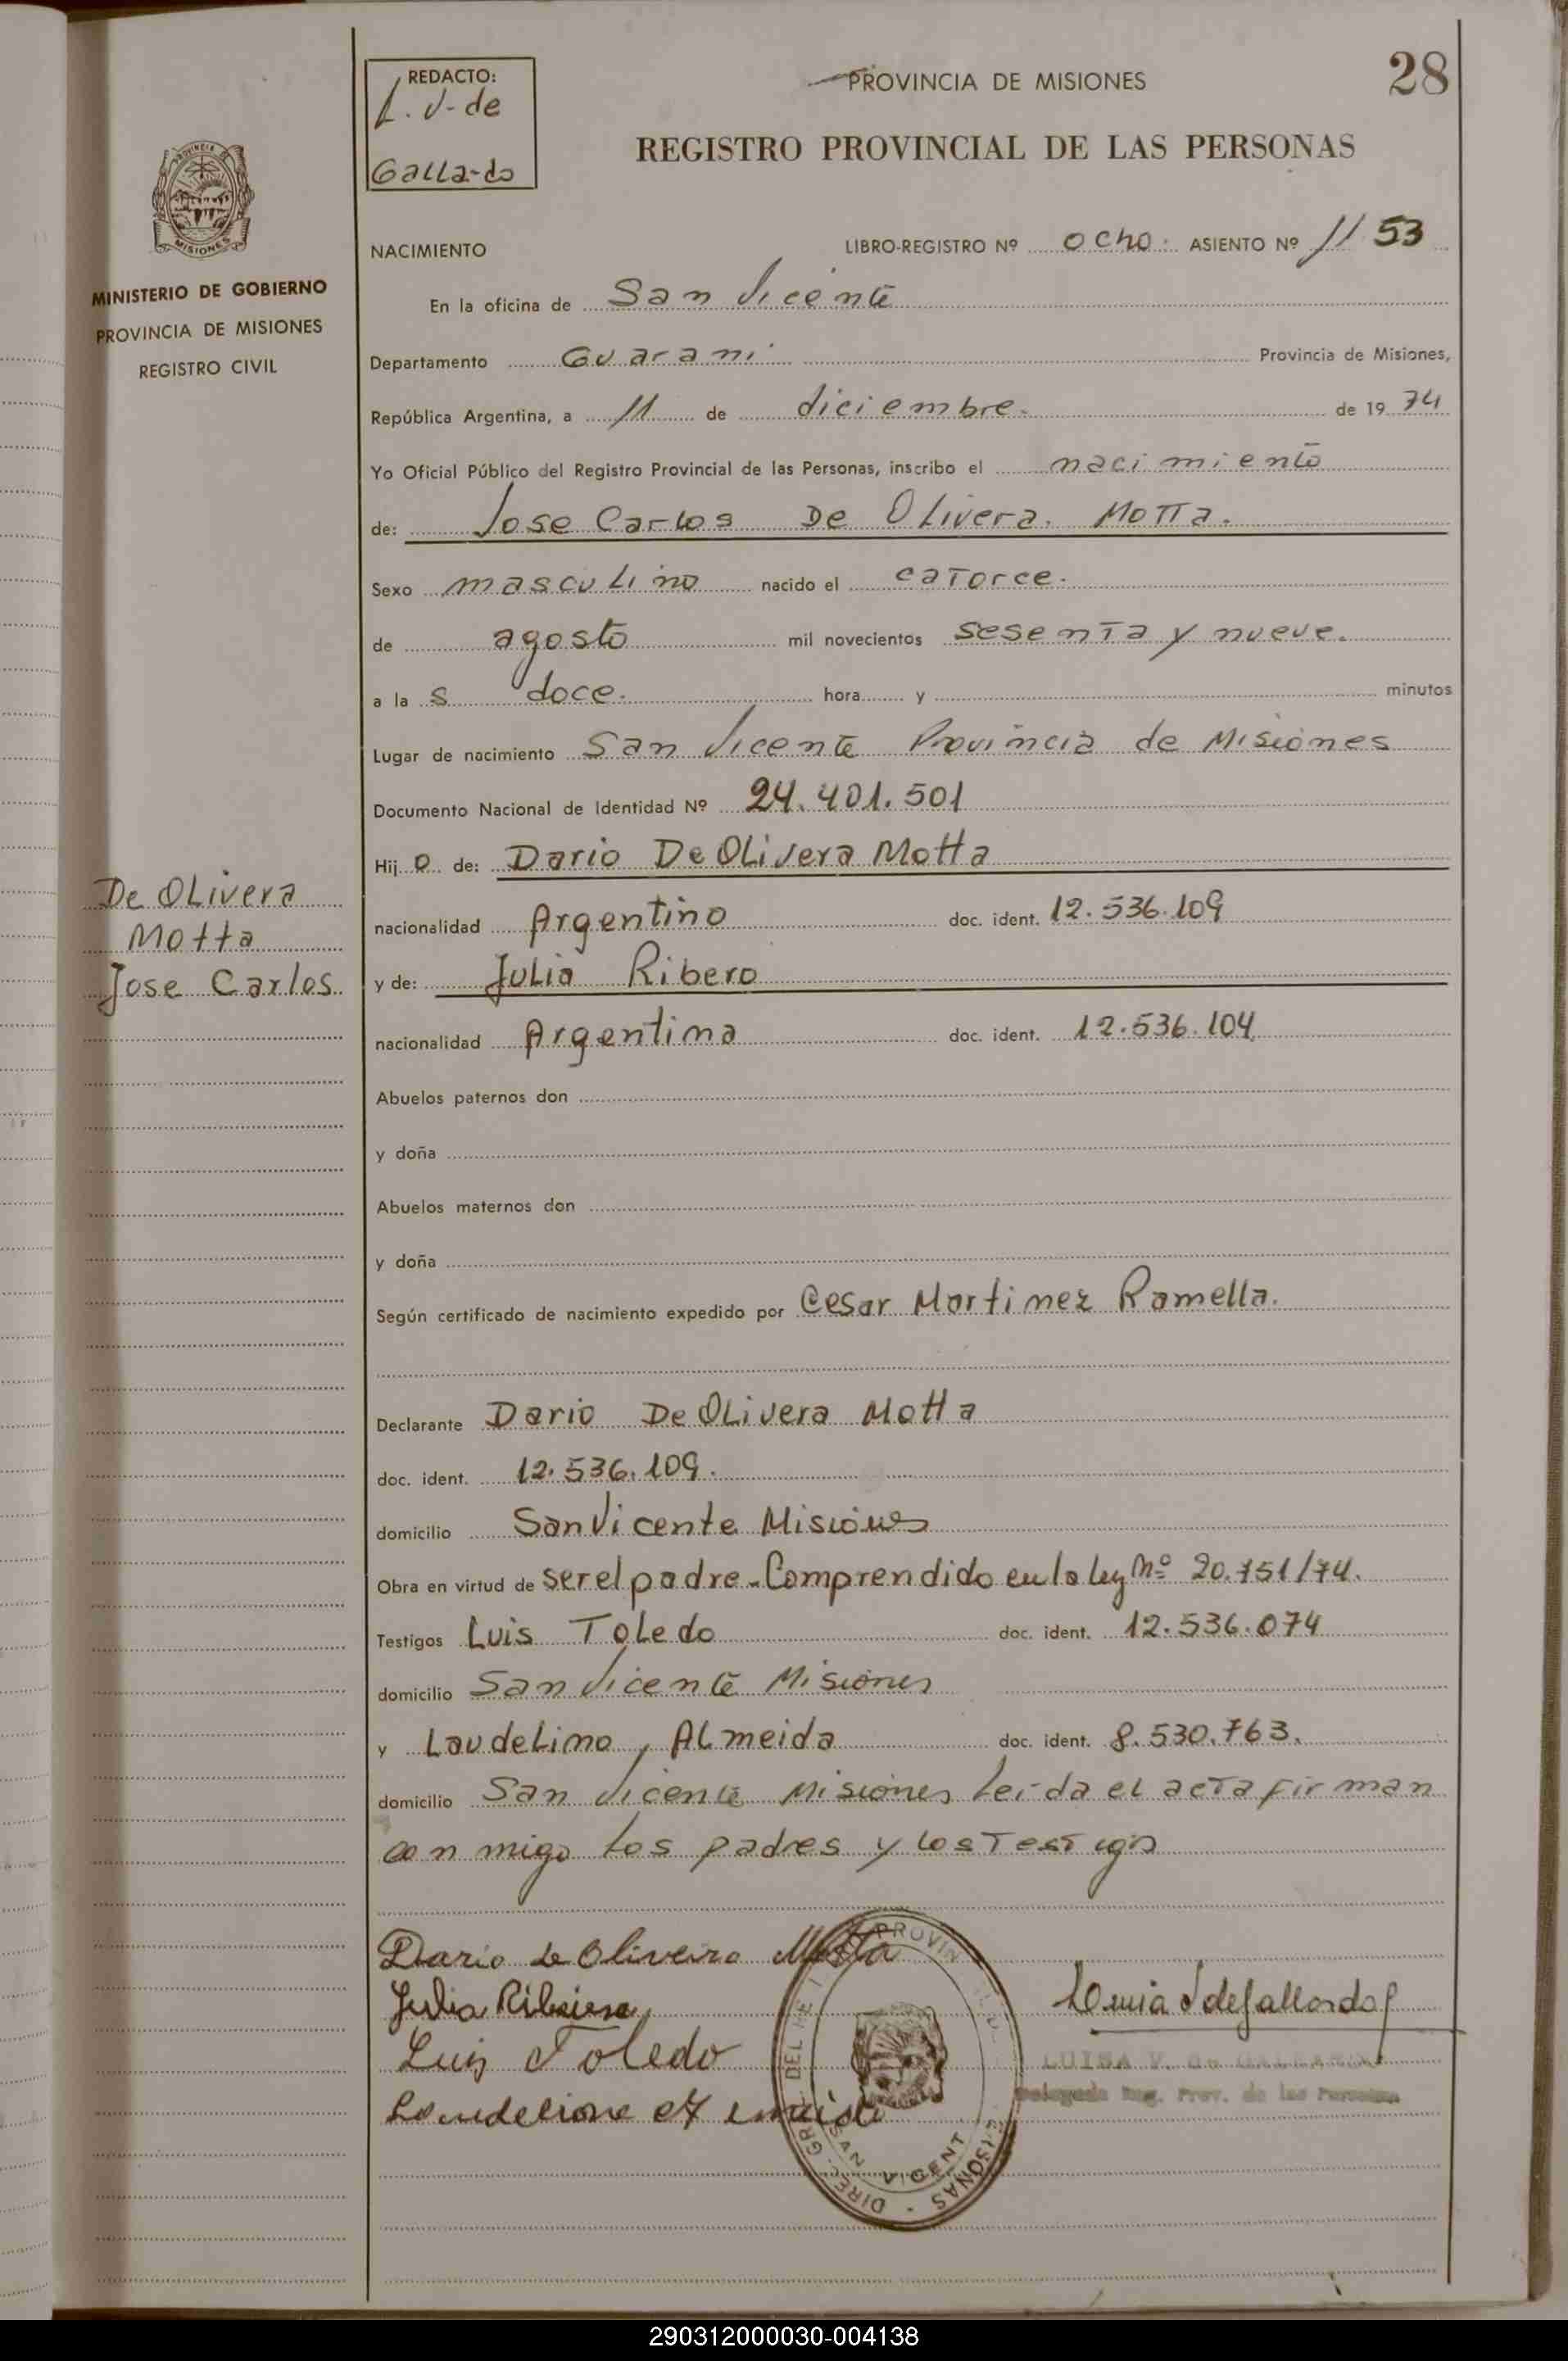 REDACTO:
L. V. de
Gallardo
PROVINCIA DE MISIONES
28
REGISTRO PROVINCIAL DE LAS PERSONAS
PROVINCIA DE
MISIONES
MINISTERIO DE GOBIERNO
PROVINCIA DE MISIONES
REGISTRO CIVIL
NACIMIENTO
LIBRO-REGISTRO Nº ocho. ASIENTO Nº 1153
En la oficina de San Vicente
Departamento Guarani Provincia de Misiones,
República Argentina, a 11 de diciembre. de 1974
Yo Oficial Público del Registro Provincial de las Personas, inscribo el nacimiento
de: Jose Carlos De Olivera. Motta.
Sexo masculino nacido el catorce.
de agosto mil novecientos sesenta y nueve.
a la s doce. hora y minutos
Lugar de nacimiento San Vicente Provincia de Misiones
Documento Nacional de Identidad Nº 24.401.501
Hijo de: Dario De Olivera Motta
De Olivera
Motta
Jose Carlos
nacionalidad Argentino doc. ident. 12.536.109
y de: Julia Ribero
nacionalidad Argentina doc. ident. 12.536.104
Abuelos paternos don
y doña
Abuelos maternos don
y doña
Según certificado de nacimiento expedido por Cesar Martinez Ramella.
Declarante Dario De Olivera Motta
doc. ident. 12.536.109.
domicilio San Vicente Misiones
Obra en virtud de ser el padre - Comprendido en la ley Nº 20.751/74.
Testigos Luis Toledo doc. ident. 12.536.074
domicilio San Vicente Misiones
y Laudelino, Almeida doc. ident. 8.530.763.
domicilio San Vicente Misiones Leida el acta firman
conmigo los padres y los Testigos
Dario de Oliveira Motta
Julia Ribeiro
Luis Toledo
LUISA V. de GALLARDO
Delegada Reg. Prov. de las Personas
SAN VICENTE
290312000030-004138